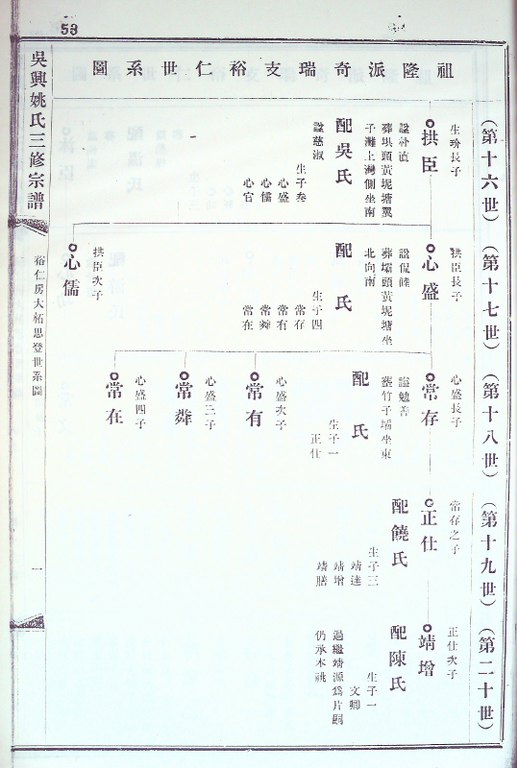 53
祖隆派奇瑞支裕仁世系圖
吳興姚氏三修宗譜
裕仁房大祐思登世系圖
一
（第十六世）
生瑜長子
拱臣
諡朴直
葬垻頭黃坭塘翼
子灘上灣側坐南
配吳氏
諡慈淑
生子叁
心盛
心儒
心官
（第十七世）
拱臣長子
心盛
諡侃睦
葬壩頭黃坭塘坐
北向南
配 氏
生子四
常存
常有
常舜
常在
拱臣次子
心儒
（第十八世）
心盛長子
常存
諡勉善
葬竹子壋坐東
配 氏
生子一
正仕
心盛次子
常有
心盛三子
常舜
心盛四子
常在
（第十九世）
常存之子
正仕
配饒氏
生子三
靖達
靖增
靖膳
（第二十世）
正仕次子
靖增
配陳氏
生子一
文卿
過繼靖源為片嗣
仍承本祧